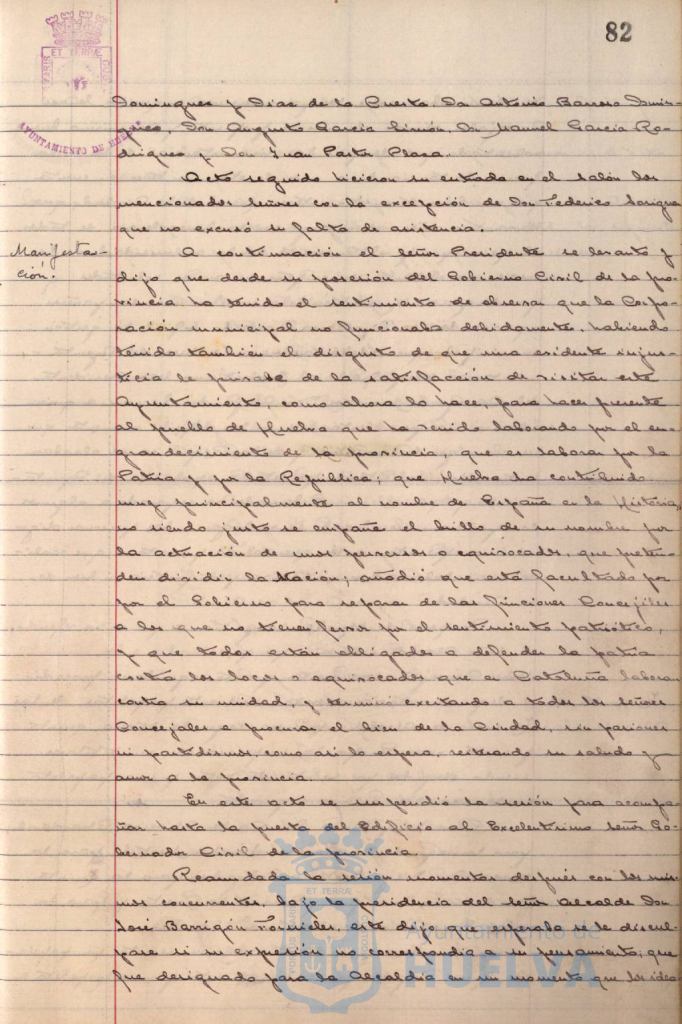 82
PORTUS MARIS ET TERRAE CUSTODIA
AYUNTAMIENTO DE HUELVA
Domingues y Dias de la Cuesta, Don Antonio Barroso Domin-
gues, Don Augusto Garcia Limón, Don Manuel Garcia Ro-
drigues y Don Juan Pastor Plasa.
Acto seguido hicieron su entrada en el salón los
mencionados señores con la excepción de Don Federico
que no excusó su falta de asistencia.
Manifesta-
ción.
A continuación el señor Presidente se levantó y
dijo que desde su posesión del Gobierno Civil de la pro-
vincia ha tenido el sentimiento de observar que la Corpo-
ración municipal no funcionaba debidamente, habiendo
tenido también el disgusto de que una evidente injus-
ticia le privase de la satisfacción de visitar este
Ayuntamiento, como ahora lo hace, para hacer presente
al pueblo de Huelva que ha venido laborando por el en-
grandecimiento de la provincia, que es laborar por la
Patria y por la República; que Huelva ha contribuido
muy principalmente al nombre de España en la Historia,
no siendo justo se empañe el brillo de su nombre por
la actuación de unos perversos o equivocados, que preten-
den dividir la Nación; añadió que está facultado por
por el Gobierno para separar de las funciones Concejiles
a los que no tienen fervor por el sentimiento patriótico,
y que todos están obligados a defender la patria
contra los locos o equivocados que en Cataluña laboran
contra su unidad, y terminó excitando a todos los señores
Concejales a procurar el bien de la Ciudad, sin pasiones
ni partidismos, como asi lo espera, reiterando su saludo y
amor a la provincia.
En este acto se suspendió la sesión para acompa-
ñar hasta la puerta del Edificio al Excelentisimo señor Go-
bernador Civil de la provincia.
Reanudada la sesión momentos después con los mis-
mos concurrentes, bajo la presidencia del señor Alcalde Don
José Barrigón Fornieles, este dijo que esperaba se le discul-
pase si su expresión no correspondia a su pensamiento; que
fue designado para la Alcaldia en un momento que los idea-
Ayuntamiento de
HUELVA